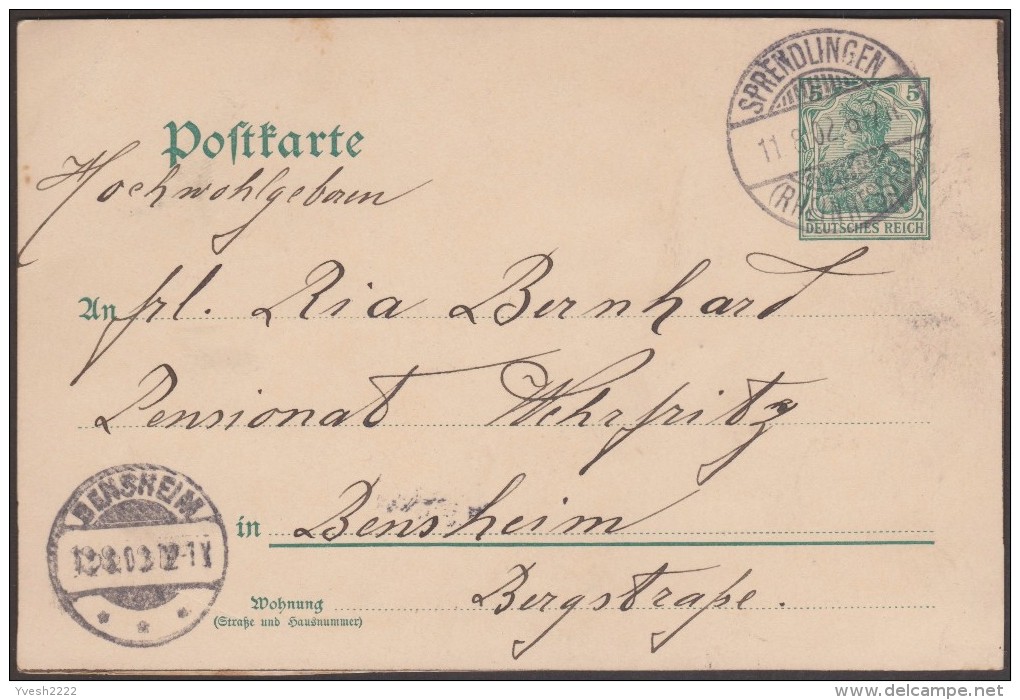 SPRENDLINGEN
11.8.02.6-7N.
(RHEINHESS)
5 5
DEUTSCHES REICH
Postkarte
Hochwohlgeboren
An frl. Ria Bernhard
Pensionat Wehrfritz
in Bensheim
BENSHEIM
12-1V
Wohnung Bergstraße.
(Straße und Hausnummer)
Yvesh2222
delcampe.net